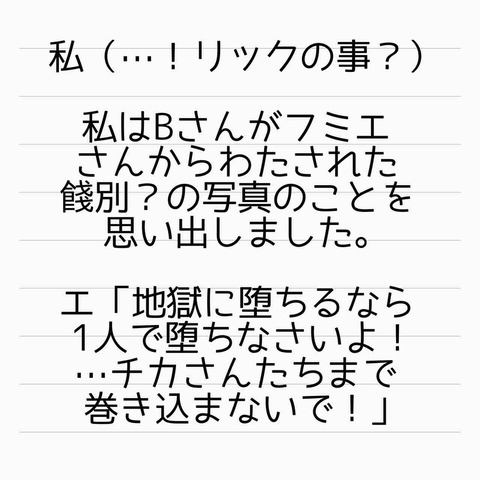 私（…！リックの事？）
私はBさんがフミエ
さんからわたされた
餞別？の写真のことを
思い出しました。
エ「地獄に堕ちるなら
1人で堕ちなさいよ！
…チカさんたちまで
巻き込まないで！」